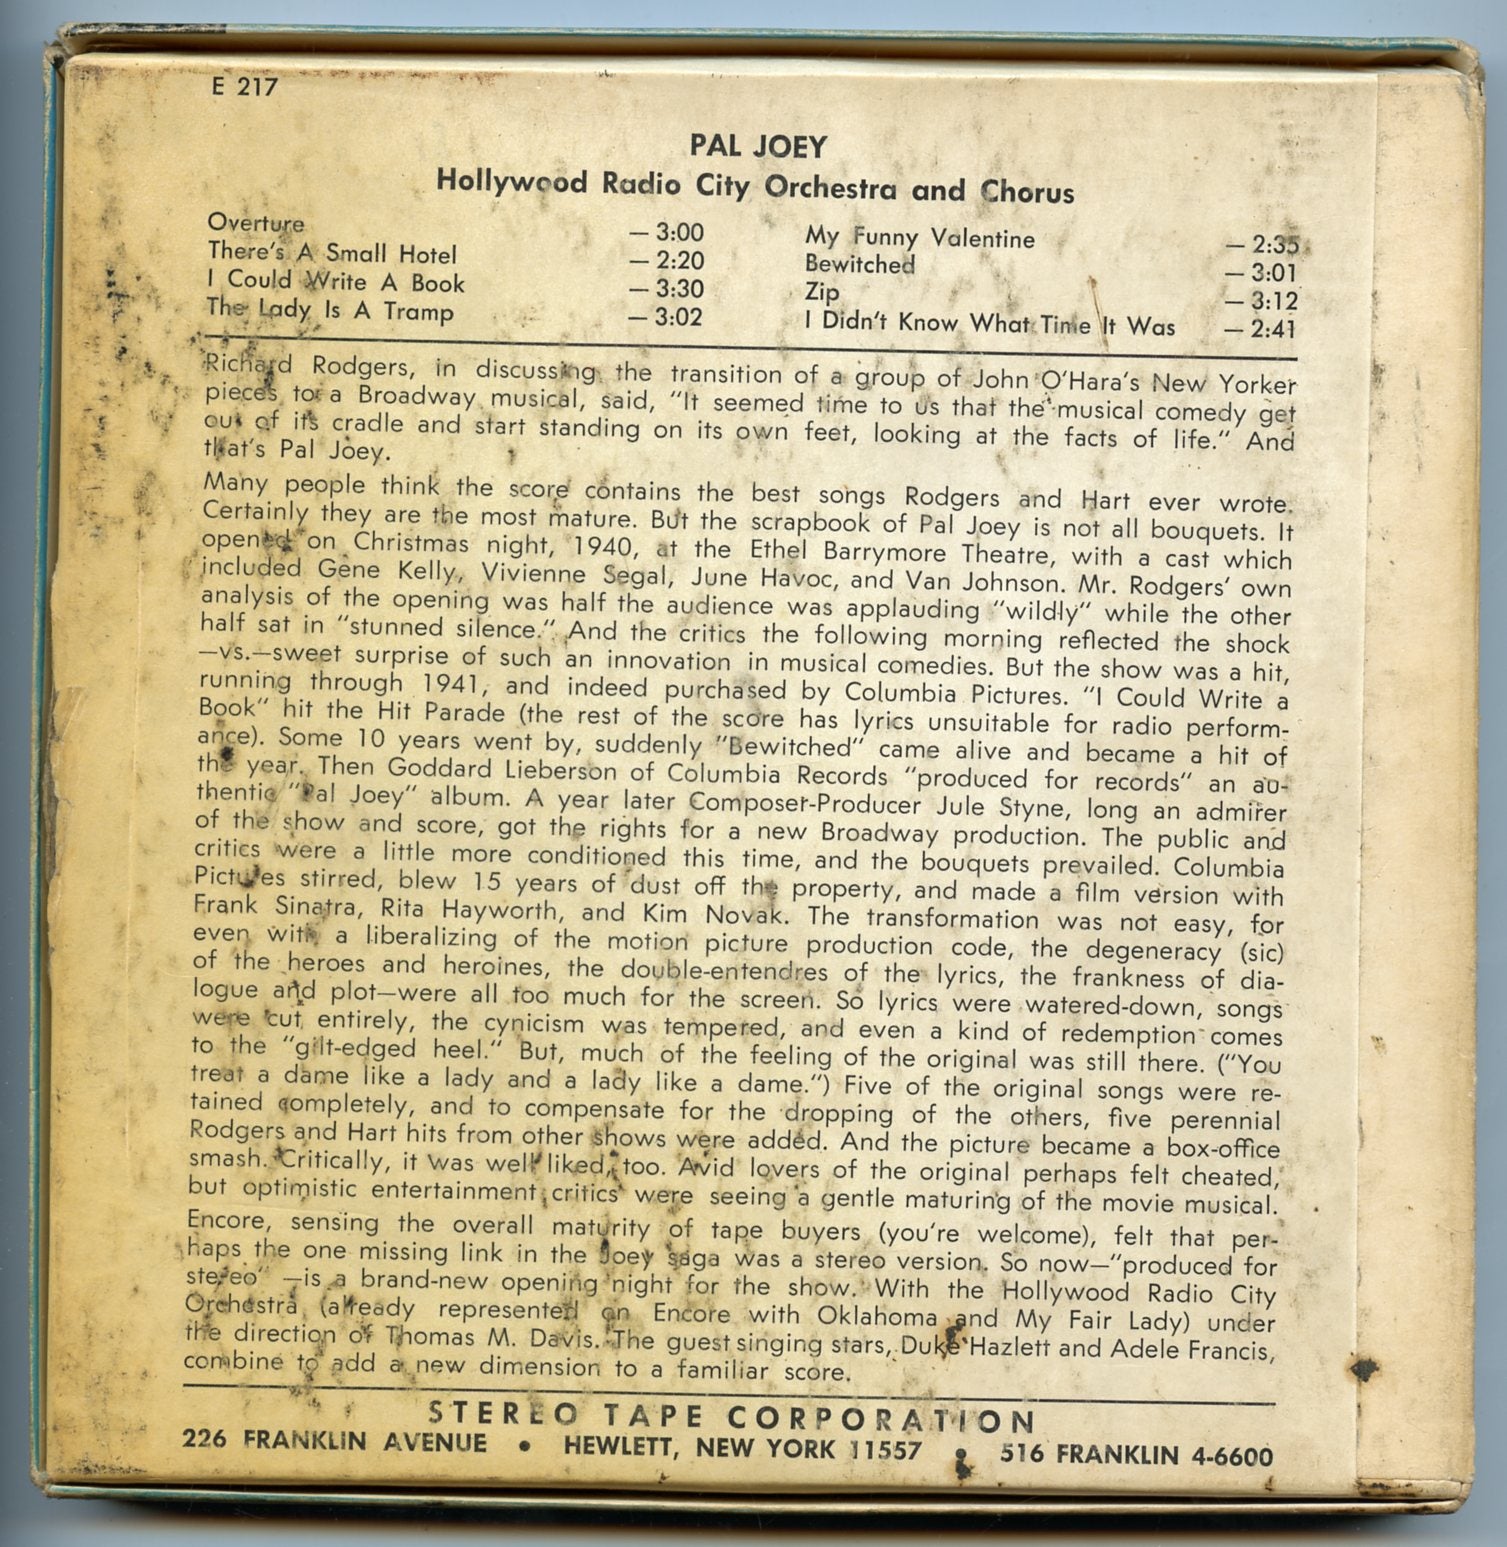 E 217
PAL JOEY
Hollywood Radio City Orchestra and Chorus
Overture — 3:00 My Funny Valentine — 2:35
There's A Small Hotel — 2:20 Bewitched — 3:01
I Could Write A Book — 3:30 Zip — 3:12
The Lady Is A Tramp — 3:02 I Didn't Know What Time It Was — 2:41
Richard Rodgers, in discussing the transition of a group of John O'Hara's New Yorker
pieces to a Broadway musical, said, "It seemed time to us that the musical comedy get
out of its cradle and start standing on its own feet, looking at the facts of life." And
that's Pal Joey.
Many people think the score contains the best songs Rodgers and Hart ever wrote.
Certainly they are the most mature. But the scrapbook of Pal Joey is not all bouquets. It
opened on Christmas night, 1940, at the Ethel Barrymore Theatre, with a cast which
included Gene Kelly, Vivienne Segal, June Havoc, and Van Johnson. Mr. Rodgers' own
analysis of the opening was half the audience was applauding "wildly" while the other
half sat in "stunned silence." And the critics the following morning reflected the shock
—vs.—sweet surprise of such an innovation in musical comedies. But the show was a hit,
running through 1941, and indeed purchased by Columbia Pictures. "I Could Write a
Book" hit the Hit Parade (the rest of the score has lyrics unsuitable for radio perform-
ance). Some 10 years went by, suddenly "Bewitched" came alive and became a hit of
the year. Then Goddard Lieberson of Columbia Records "produced for records" an au-
thentic "Pal Joey" album. A year later Composer-Producer Jule Styne, long an admirer
of the show and score, got the rights for a new Broadway production. The public and
critics were a little more conditioned this time, and the bouquets prevailed. Columbia
Pictures stirred, blew 15 years of dust off the property, and made a film version with
Frank Sinatra, Rita Hayworth, and Kim Novak. The transformation was not easy, for
even with a liberalizing of the motion picture production code, the degeneracy (sic)
of the heroes and heroines, the double-entendres of the lyrics, the frankness of dia-
logue and plot—were all too much for the screen. So lyrics were watered-down, songs
were cut entirely, the cynicism was tempered, and even a kind of redemption comes
to the "gilt-edged heel." But, much of the feeling of the original was still there. ("You
treat a dame like a lady and a lady like a dame.") Five of the original songs were re-
tained completely, and to compensate for the dropping of the others, five perennial
Rodgers and Hart hits from other shows were added. And the picture became a box-office
smash. Critically, it was well liked, too. Avid lovers of the original perhaps felt cheated,
but optimistic entertainment critics were seeing a gentle maturing of the movie musical.
Encore, sensing the overall maturity of tape buyers (you're welcome), felt that per-
haps the one missing link in the Joey saga was a stereo version. So now—"produced for
stereo" —is a brand-new opening night for the show. With the Hollywood Radio City
Orchestra (already represented on Encore with Oklahoma and My Fair Lady) under
the direction of Thomas M. Davis. The guest singing stars, Duke Hazlett and Adele Francis,
combine to add a new dimension to a familiar score.
STEREO TAPE CORPORATION
226 FRANKLIN AVENUE • HEWLETT, NEW YORK 11557 • 516 FRANKLIN 4-6600